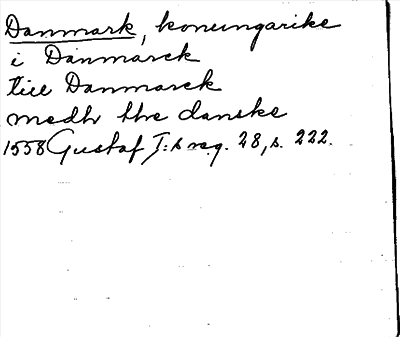 Danmark, konungarike
i Danmarck
till Danmarck
medh the danske
1558 Gustaf I:s reg. 28, s. 222.